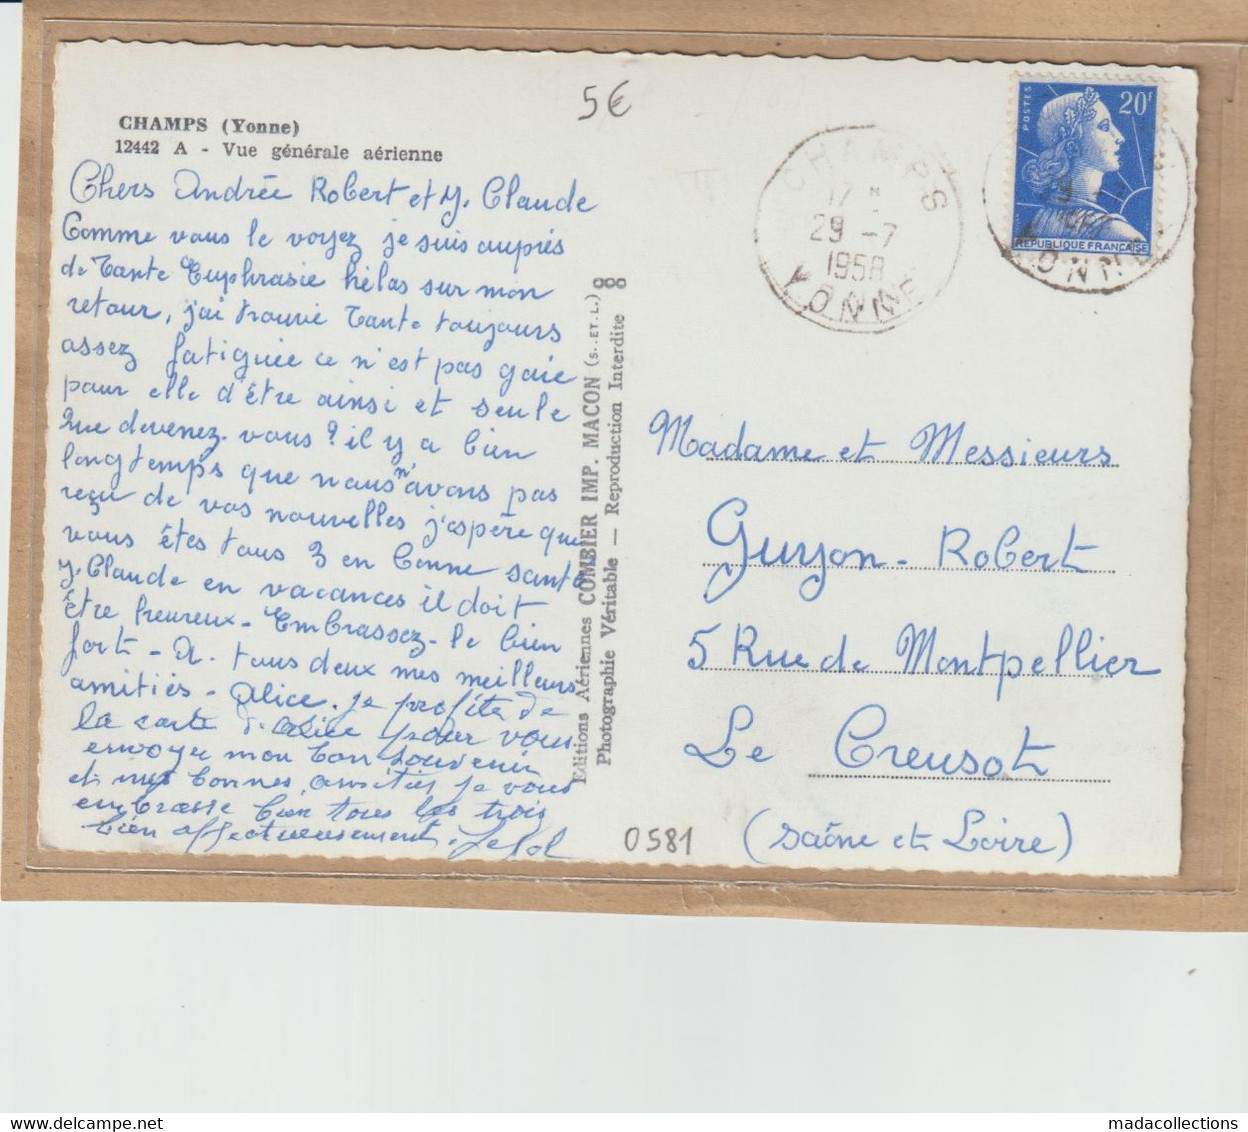 5€
CHAMPS (Yonne)
12442 A - Vue générale aérienne
Chers Andrée Robert et J. Claude
Comme vous le voyez je suis auprès
de Tante Euphrasie hélas sur mon
retour, j'ai trouvé Tante toujours
assez fatiguée ce n'est pas gaie
pour elle d'être ainsi et seule
Que devenez-vous ? il y a bien
longtemps que nous n'avons pas
reçu de vos nouvelles j'espère que
vous êtes tous 3 en bonne santé
J. Claude en vacances il doit
être heureux - Embrassez-le bien
fort - A tous deux mes meilleurs
amitiés - Alice. je profite de
la carte d'Alice pour vous
envoyer mon bon souvenir
et mes bonnes amitiés je vous
embrasse bien tous les trois
bien affectueusement.
Editions Aériennes COMBIER IMP. MACON (S.-ET-L.)
Photographie Véritable — Reproduction Interdite
CHAMPS
17 H
29 -7
1958
YONNE
POSTES
20F
REPUBLIQUE FRANÇAISE
Madame et Messieurs
Guyon-Robert
5 Rue de Montpellier
Le Creusot
(Saône et Loire)
0581
madacollections